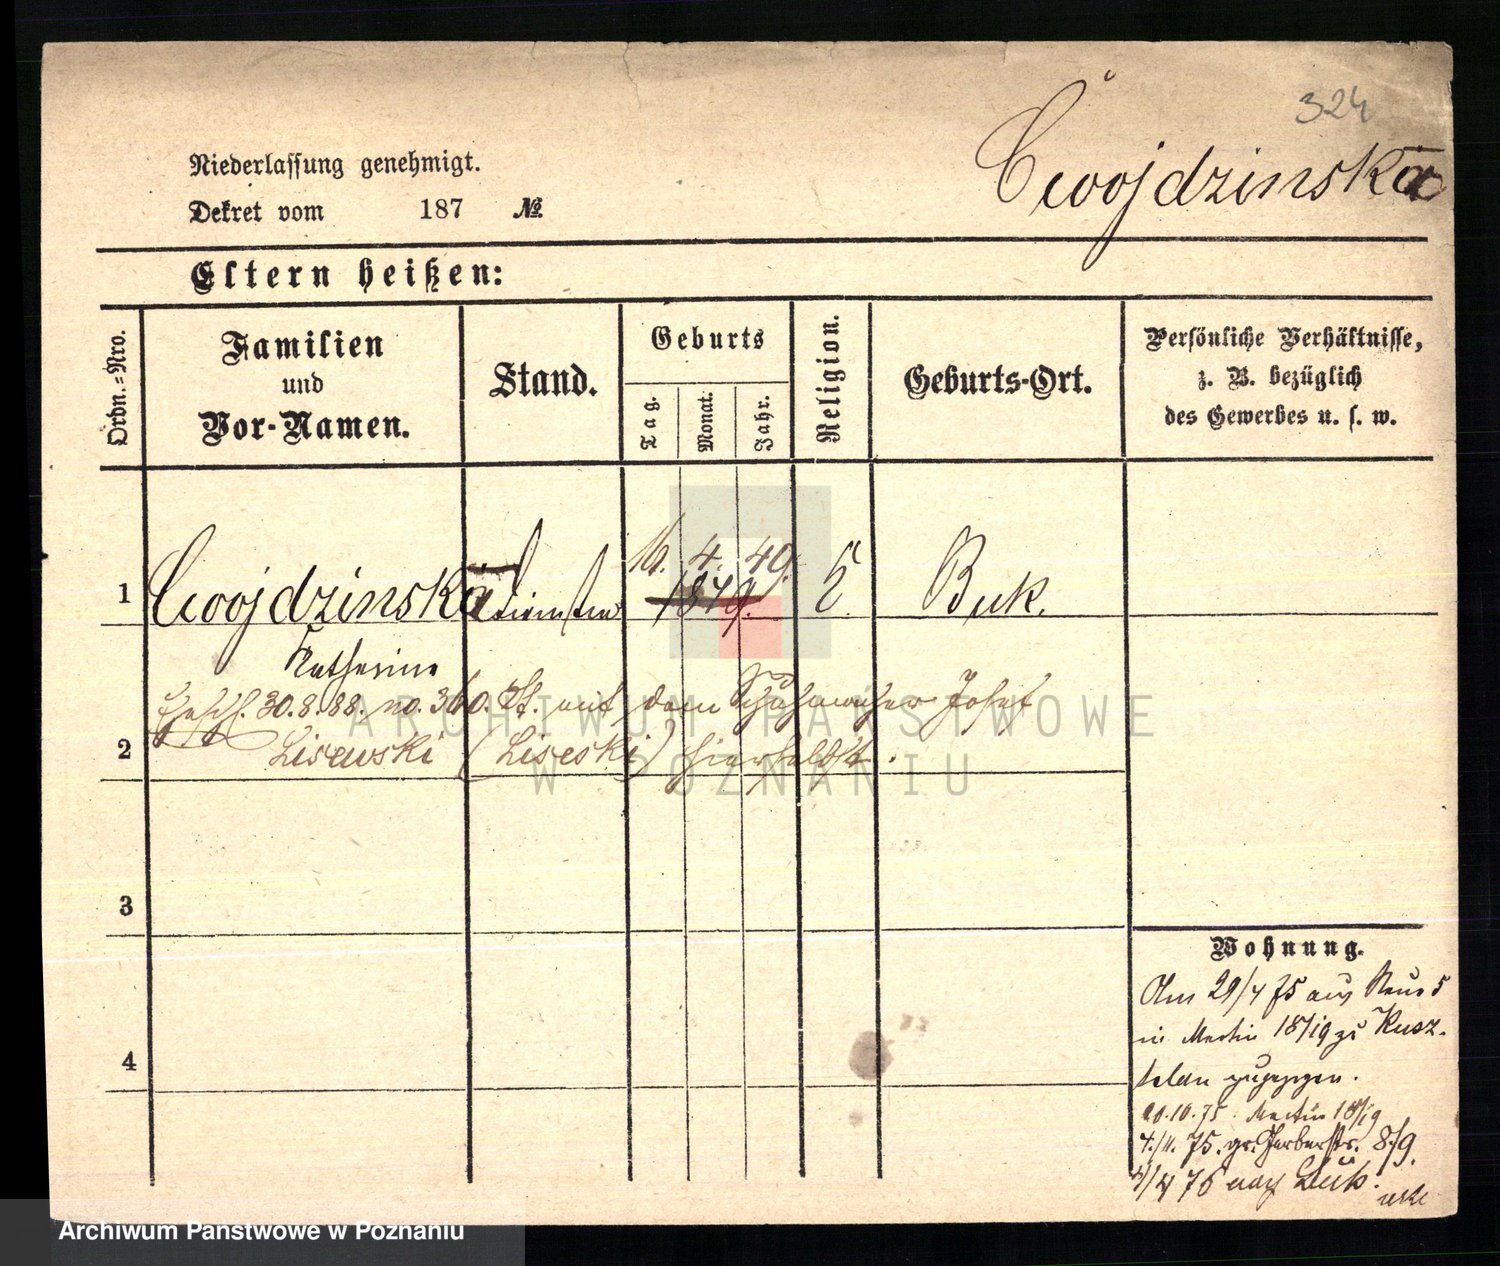 324
Cwojdzinska
Niederlassung genehmigt.
Dekret vom 187 №
Eltern heißen:
Ordn.=Nro.
Familien
und
Vor-Namen.
Stand.
Geburts
Tag.
Monat.
Jahr.
Religion.
Geburts-Ort.
Persönliche Verhältnisse,
z. B. bezüglich
des Gewerbes u. s. w.
16. 4. 49.
1 Cwojdzinska 1849. Buk.
Katharina
30.8.88. no. 360. mit dem Schuhmacher Josef
2 Lisewski (Liseski) hierselbst.
3
4
Wohnung.
Am 29/4 75 aus Neue 5
in Martin 18/19 zu Kusz-
telan zugezogen.
20.10.75. Martin 18/19
4./11. 75. gr. Gerberstr. 8/9.
4/4 76 nach Buk.
ARCHIWUM PAŃSTWOWE
W POZNANIU
Archiwum Państwowe w Poznaniu